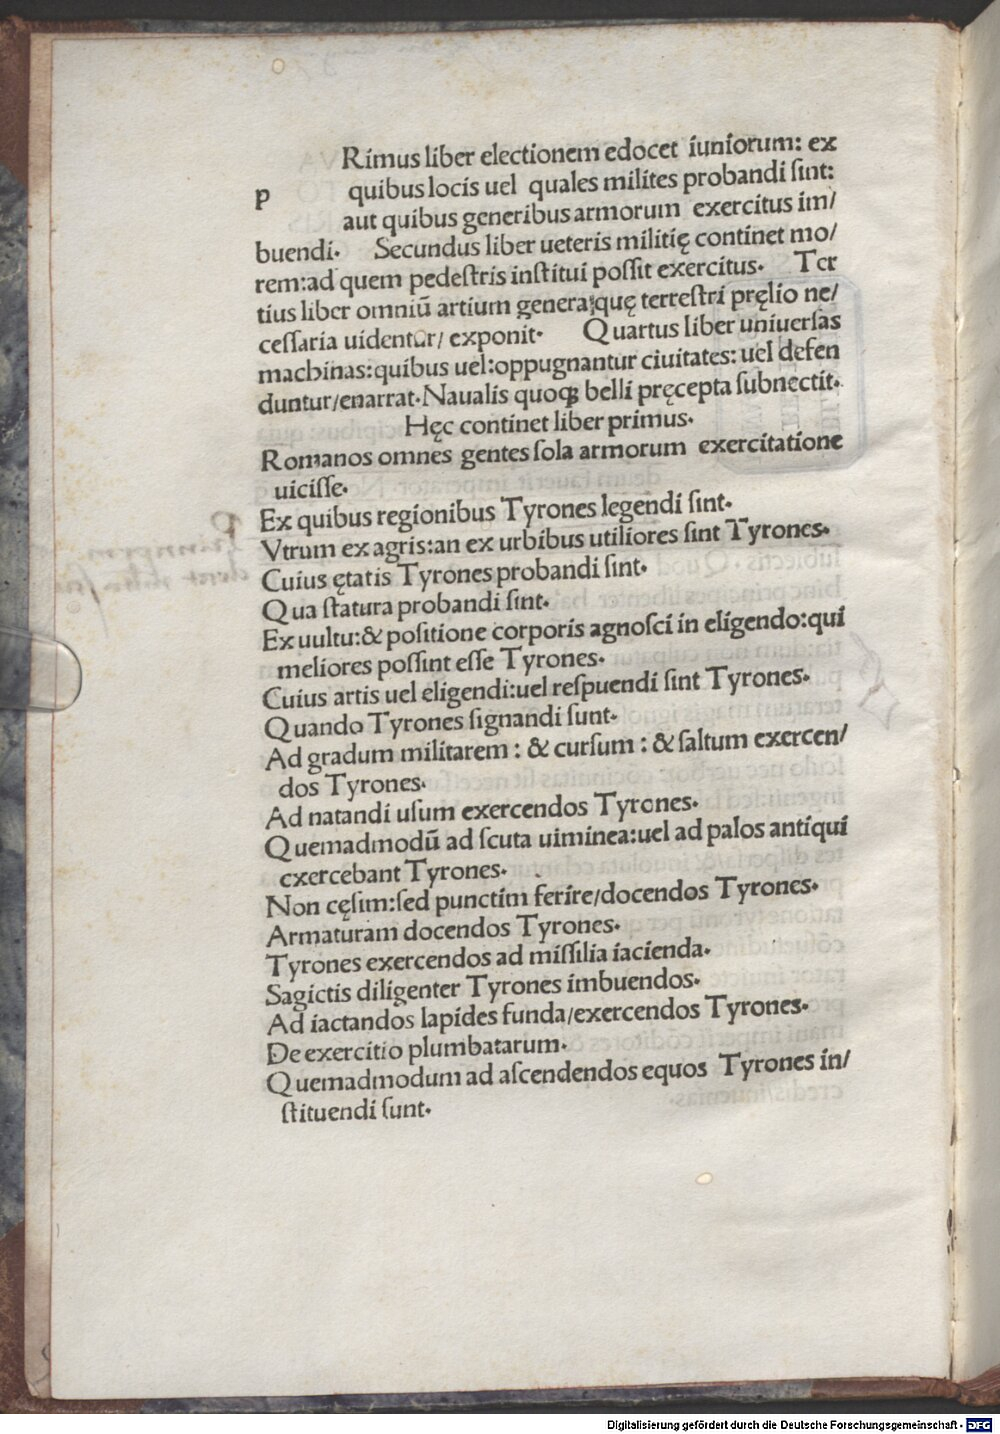 Rimus liber electionem edocet iuniorum: ex
p quibus locis uel quales milites probandi ſint:
aut quibus generibus armorum exercitus im/
buendi. Secundus liber ueteris militię continet mo/
rem:ad quem pedeſtris inſtitui poſſit exercitus. Ter
tius liber omniū artium genera:quę terreſtri pręlio ne/
ceſſaria uidentur/ exponit. Quartus liber uniuerſas
machinas:quibus uel:oppugnantur ciuitates: uel defen
duntur/enarrat.Naualis quoqꝫ belli pręcepta ſubnectit.
Hęc continet liber primus.
Romanos omnes gentes ſola armorum exercitatione
uiciſſe.
Ex quibus regionibus Tyrones legendi ſint.
Vtrum ex agris:an ex urbibus utiliores ſint Tyrones.
Cuius ętatis Tyrones probandi ſint.
Qua ſtatura probandi ſint.
Ex uultu:& poſitione corporis agnoſci in eligendo:qui
meliores poſſint eſſe Tyrones.
Cuius artis uel eligendi:uel reſpuendi ſint Tyrones.
Quando Tyrones ſignandi ſunt.
Ad gradum militarem : & curſum : & ſaltum exercen/
dos Tyrones.
Ad natandi uſum exercendos Tyrones.
Quemadmodū ad ſcuta uiminea:uel ad palos antiqui
exercebant Tyrones.
Non cęſim:ſed punctim ferire/docendos Tyrones.
Armaturam docendos Tyrones.
Tyrones exercendos ad miſſilia iacienda.
Sagictis diligenter Tyrones imbuendos.
Ad iactandos lapides funda/exercendos Tyrones.
De exercitio plumbatarum.
Quemadmodum ad aſcendendos equos Tyrones in/
ſtituendi ſunt.
Digitalisierung gefördert durch die Deutsche Forschungsgemeinschaft - DFG